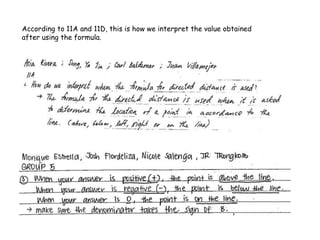 According to 11A and 11D, this is how we interpret the value obtained
after using the formula.
Asia Rivera ; Song, Ye Jin ; Carl Baldemor ; Juan Villamejor
11A
1. How do we interpret when the formula for directed distance is used?
→ The formula for the directed distance is used when it is asked
to determine the location of a point in accordance to the
line. (above, below, left, right or on the line)
Monique Estrella, Josh Flordeliza, Nicole Salenga, JR Trongkom
GROUP 5
③ When your answer is positive (+), the point is above the line.
When your answer is negative (-), the point is below the line.
When your answer is 0, the point is on the line.
→ make sure the denominator takes the sign of B.